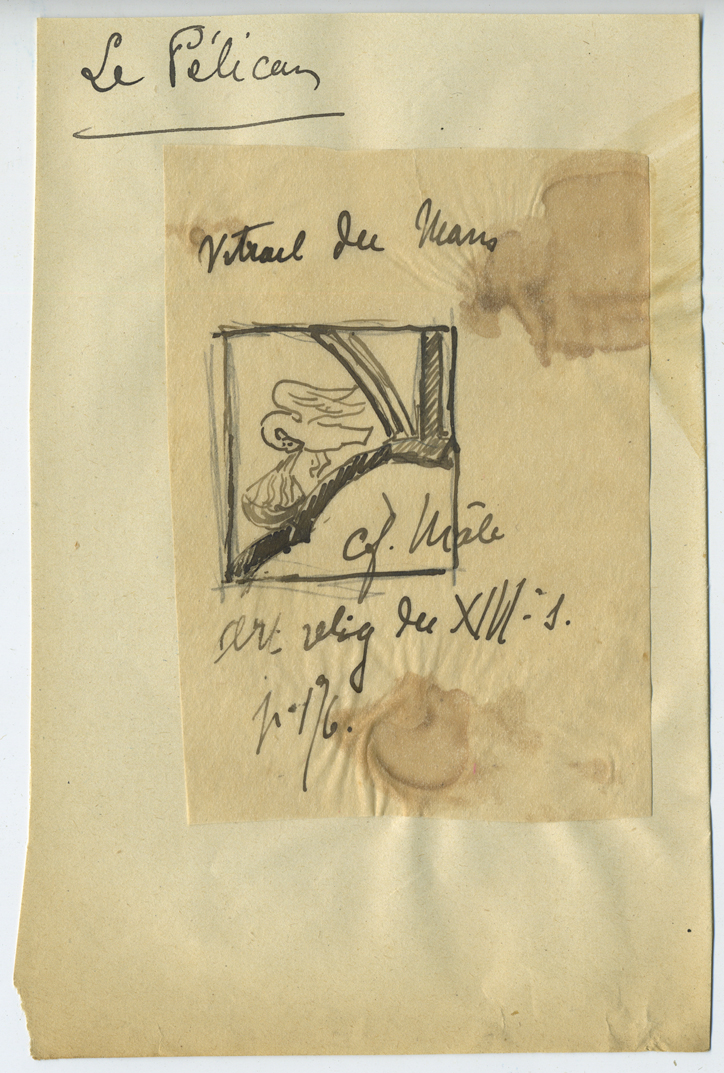 Le Pélican
Vitrail du Mans
cf. Mâle
art relig du XIIIe s.
p. 176.